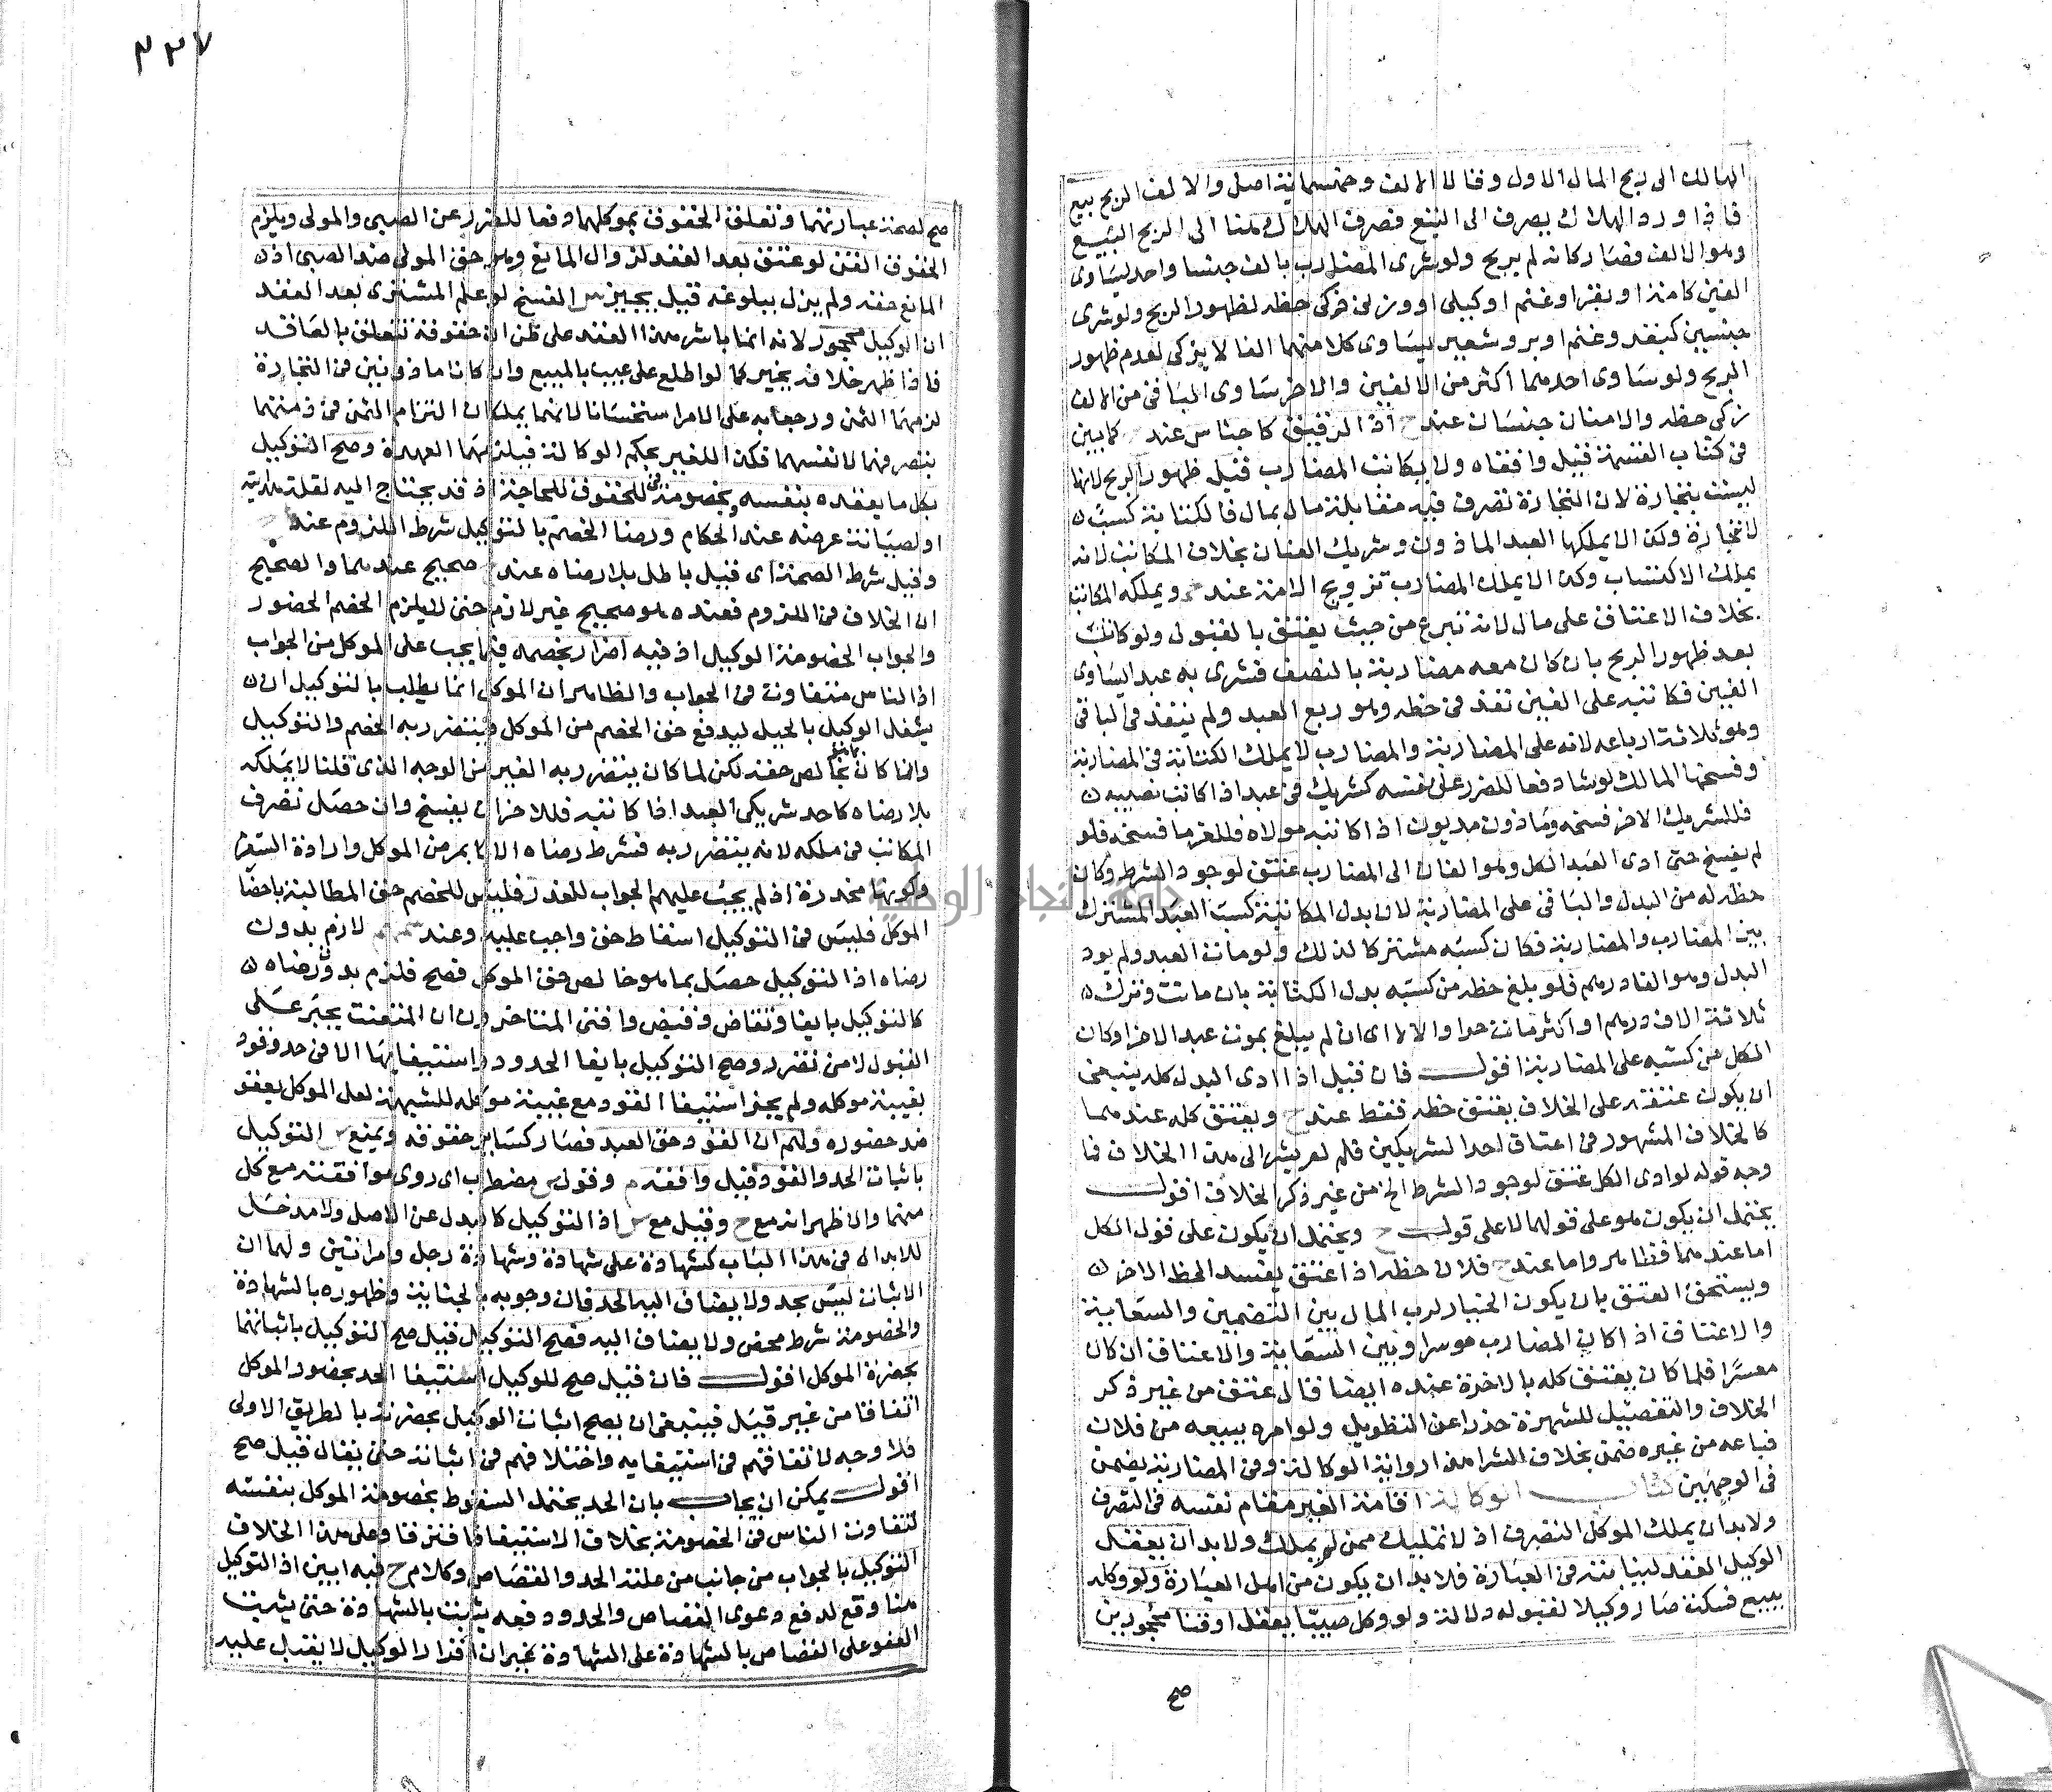 الهالك الى ربح المال الاول وقالا الالف وخمسماية اصل والالف الربح بيع
فاذا ورد الهلاك يصرف الى التبع فصرف الهلاك هنا الى الربح التبع
وهو الالف فصار كانه لم يربح ولو شرى المضارب بالف جنسا واحد يساوى
الفين كامة او بقرا وغنم او كيلى او وزنى فزكى حظه لظهور الربح ولو شرى
جنسين كبقر وغنم او بر وشعير يساوى كلا منهما الفا لا يزكى لعدم ظهور
الربح ولو ساوى احدهما اكثر من الالفين والاخر ساوى الباقى من الالف
زكى حظه والامتان جنسان عند ح اذ الرقيق كاجناس عند كما بين
فى كتاب القسمة قيل وافقاه ولا يكاتب المضارب قبل ظهور الربح لانها
ليست بتجارة لان التجارة تصرف فيه مقابلة مال بمال فالكتابة كسب
لا تجارة وكذا لا يملكها العبد الماذون وشريك العنان بخلاف المكاتب لانه
يملك الاكتساب وكذا لا يملك المضارب تزويج الامة عند ويملكه المكاتب
بخلاف الاعتاق على مال لانه تبرع من حيث يعتق بالقبول ولو كاتب
بعد ظهور الربح بان كان معه مضاربة بالنصف فشرى به عبد ايساوى
الفين فكاتبه على الفين نفذ فى حظه وهو ربع العبد ولم ينفذ فى الباقى
وهو ثلاثة ارباعه لانه على المضاربة والمضارب لا يملك الكتابة فى المضاربة
وفسخها المالك لو شا دفعا للضرر على نفسه كشريك فى عبد اذا كاتب نصيبه
فللشريك الاخر فسخه وماذون مديون اذا كاتبه مولاه فللغرما فسخه فلو
لم يفسخ حتى ادى العبد الكل وهو الفان الى المضارب عتق لوجود الشرط وكان
حظه له من البدل والباقى على المضاربة لان بدل المكاتبة كسب العبد المشترك
بين المضارب والمضاربة فكان كسبه مشتركا لذلك ولو مات العبد ولم يود
البدل وهو الفا درهم فلو بلغ حظه من كسبه بدل الكتابة بان مات وترك
ثلاثة الاف درهم او اكثر مات حرا والا اى ان لم يبلغ يموت عبد الاخرا وكان
الكل من كسبه على المضاربة اقول فان قيل اذا ادى البدل كله ينبغى
ان يكون عتقه على الخلاف يعتق حظه فقط عند ح ويعتق كله عندهما
كالخلاف المشهور فى اعتاق احد الشريكين فلم لم يشر الى هذا الخلاف فما
وجه قوله لو ادى الكل عتق لوجود الشرط الخ من غير ذكر الخلاف اقول
يحتمل ان يكون هو على قولهما لا على قول ح ويحتمل ان يكون على قول الكل
اما عندهما فظاهر واما عند ح فلان حظه اذا اعتق يفسد الحظ الاخر
ويستحق العتق بان يكون الخيار لرب المال بين التضمين والسعاية
والاعتاق اذا كان المضارب موسرا وبين السعاية والاعتاق ان كان
معسرا فلما كان يعتق كله بالاخرة عنده ايضا قال عتق من غير ذكر
الخلاف والتفصيل للشهرة حذرا عن التطويل ولو امره ببيعه من فلان
فباعه من غيره ضمن بخلاف الشرا هذا رواية الوكالة وفى المضاربة يضمن
فى الوجهين كتاب الوكالة اقامة الغير مقام نفسه فى التصرف
ولا بد ان يملك الموكل التصرف اذ لا تمليك ممن لم يملك ولا بد ان يعقل
الوكيل العقد لنيابته فى العبارة فلا بد ان يكون من اهل العبارة ولو وكله
ببيع فسكت صار وكيلا لقبوله دلالة ولو وكل صبيا يعقل او قنا محجورين
صح
٣٣٧
صح لصحة عبارتهما وتعلق الحقوق بموكلهما دفعا للضرر عن الصبى والمولى ويلزم
الحقوق القن لو عتق بعد العقد لزوال المانع وهو حق المولى ضد الصبى اذ
المانع حقه ولم يزل ببلوغه قيل يجيز س الفسخ لو علم المشترى بعد العقد
ان الوكيل محجور لانه انما باشر هذا العقد على ظن ان حقوقه تتعلق بالعاقد
فاذا ظهر خلافه يخير كما لو اطلع على عيب بالمبيع وان كانا ماذونين فى التجارة
لزمهما الثمن ورجعا به على الامر استحسانا لانهما يملكان التزام الثمن فى ذمتهما
بتصرفهما لانفسهما فكذا للغير بحكم الوكالة فيلزمهما العهدة وصح التوكيل
بكل ما يعقده بنفسه وبخصومة فى للحقوق للحاجة اذ قد يحتاج اليه لقلة هدايته
او لصيانة عرضه عند الحكام ورضا الخصم بالتوكيل شرط اللزوم عند
وقيل شرط الصحة اى قيل باطل بلا رضاه عند صحيح عندهما والصحيح
ان الخلاف فى اللزوم فعنده هو صحيح غير لازم حتى لا يلزم الخصم الحضور
والجواب الخصومة الوكيل اذ فيه اضرار بخصمه فيما يجب على الموكل من الجواب
اذ الناس متفاوتة فى الجواب والظاهر ان الموكل انما يطلب بالتوكيل ان
يشغل الوكيل بالحيل ليدفع حق الخصم من الموكل فيتضرر به الخصم والتوكيل
وانما كان بخالص حقه لكن لما كان يتضرر به الغير من الوجه الذى قلنا لا يملكه
بلا رضاه كاحد شريكى العبد اذا كاتبه فللاخر ان يفسخ وان حصل تصرف
المكاتب فى ملكه لانه يتضرر به فشرط رضاه الا بمرض الموكل وارادة السفر
وكونها مخدرة اذ لم يجب عليهم الجواب للعذر فليس للخصم حق المطالبة باحضا
الموكل فليس فى التوكيل اسقاط حق واجب عليه وعند لازم بدون
رضاه اذ التوكيل حصل بما هو خالص حق الموكل فصح فلزم بدون رضاه
كالتوكيل بايفا وتقاض وقبض وافتى المتاخرون ان المتعنت يجبر على
القبول لا من تضرر وصح التوكيل بايفا الحدود واستيفايها الا فى حد وقود
بغيبة موكله ولم يجز استيفا القود مع غيبة موكله للشبهة لعل الموكل يعفو
ضد حضوره ولهم ان القود حق العبد فصار كساير حقوقه ويمنع س التوكيل
باثبات الحد والقود قيل وافقه م وقول س مضطرب اى روى موافقته مع كل
منهما والاظهر انه مع ح وقيل مع س اذ التوكيل كا بدل عن الاصل ولا مدخل
للابدال فى هذا الباب كشهادة على شهادة وشهادة رجل وامراتين ولهما ان
الاثبات ليس بحد ولا يضاف اليه الحد فان وجوبه بالجناية وظهوره بالشهادة
والخصومة شرط محض ولا يضاف اليه فصح التوكيل قيل صح التوكيل باثباتهما
بحضرة الموكل اقول فان قيل صح للوكيل استيفا الحد بحضور الموكل
اتفاقا من غير قيل فينبغى ان يصح اثبات الوكيل بحضرته بالطريق الاولى
فلا وجه لاتفاقهم فى استيفايه واختلافهم فى اثباته حتى يقال قيل صح
اقول يمكن ان يجاب بان الحد يحتمل السقوط بخصومة الموكل بنفسه
لتفاوت الناس فى الخصومة بخلاف الاستيفا فافترقا وعلى هذا الخلاف
التوكيل بالجواب من جانب من علته الحد والقصاص وكلام ح فيه ابين اذ التوكيل
هنا وقع لدفع دعوى القصاص والحد ودفعه يثبت بالشهادة حتى يثبت
العفو على القصاص بالشهادة على الشهادة غير ان اقرار الوكيل لا يقبل عليه